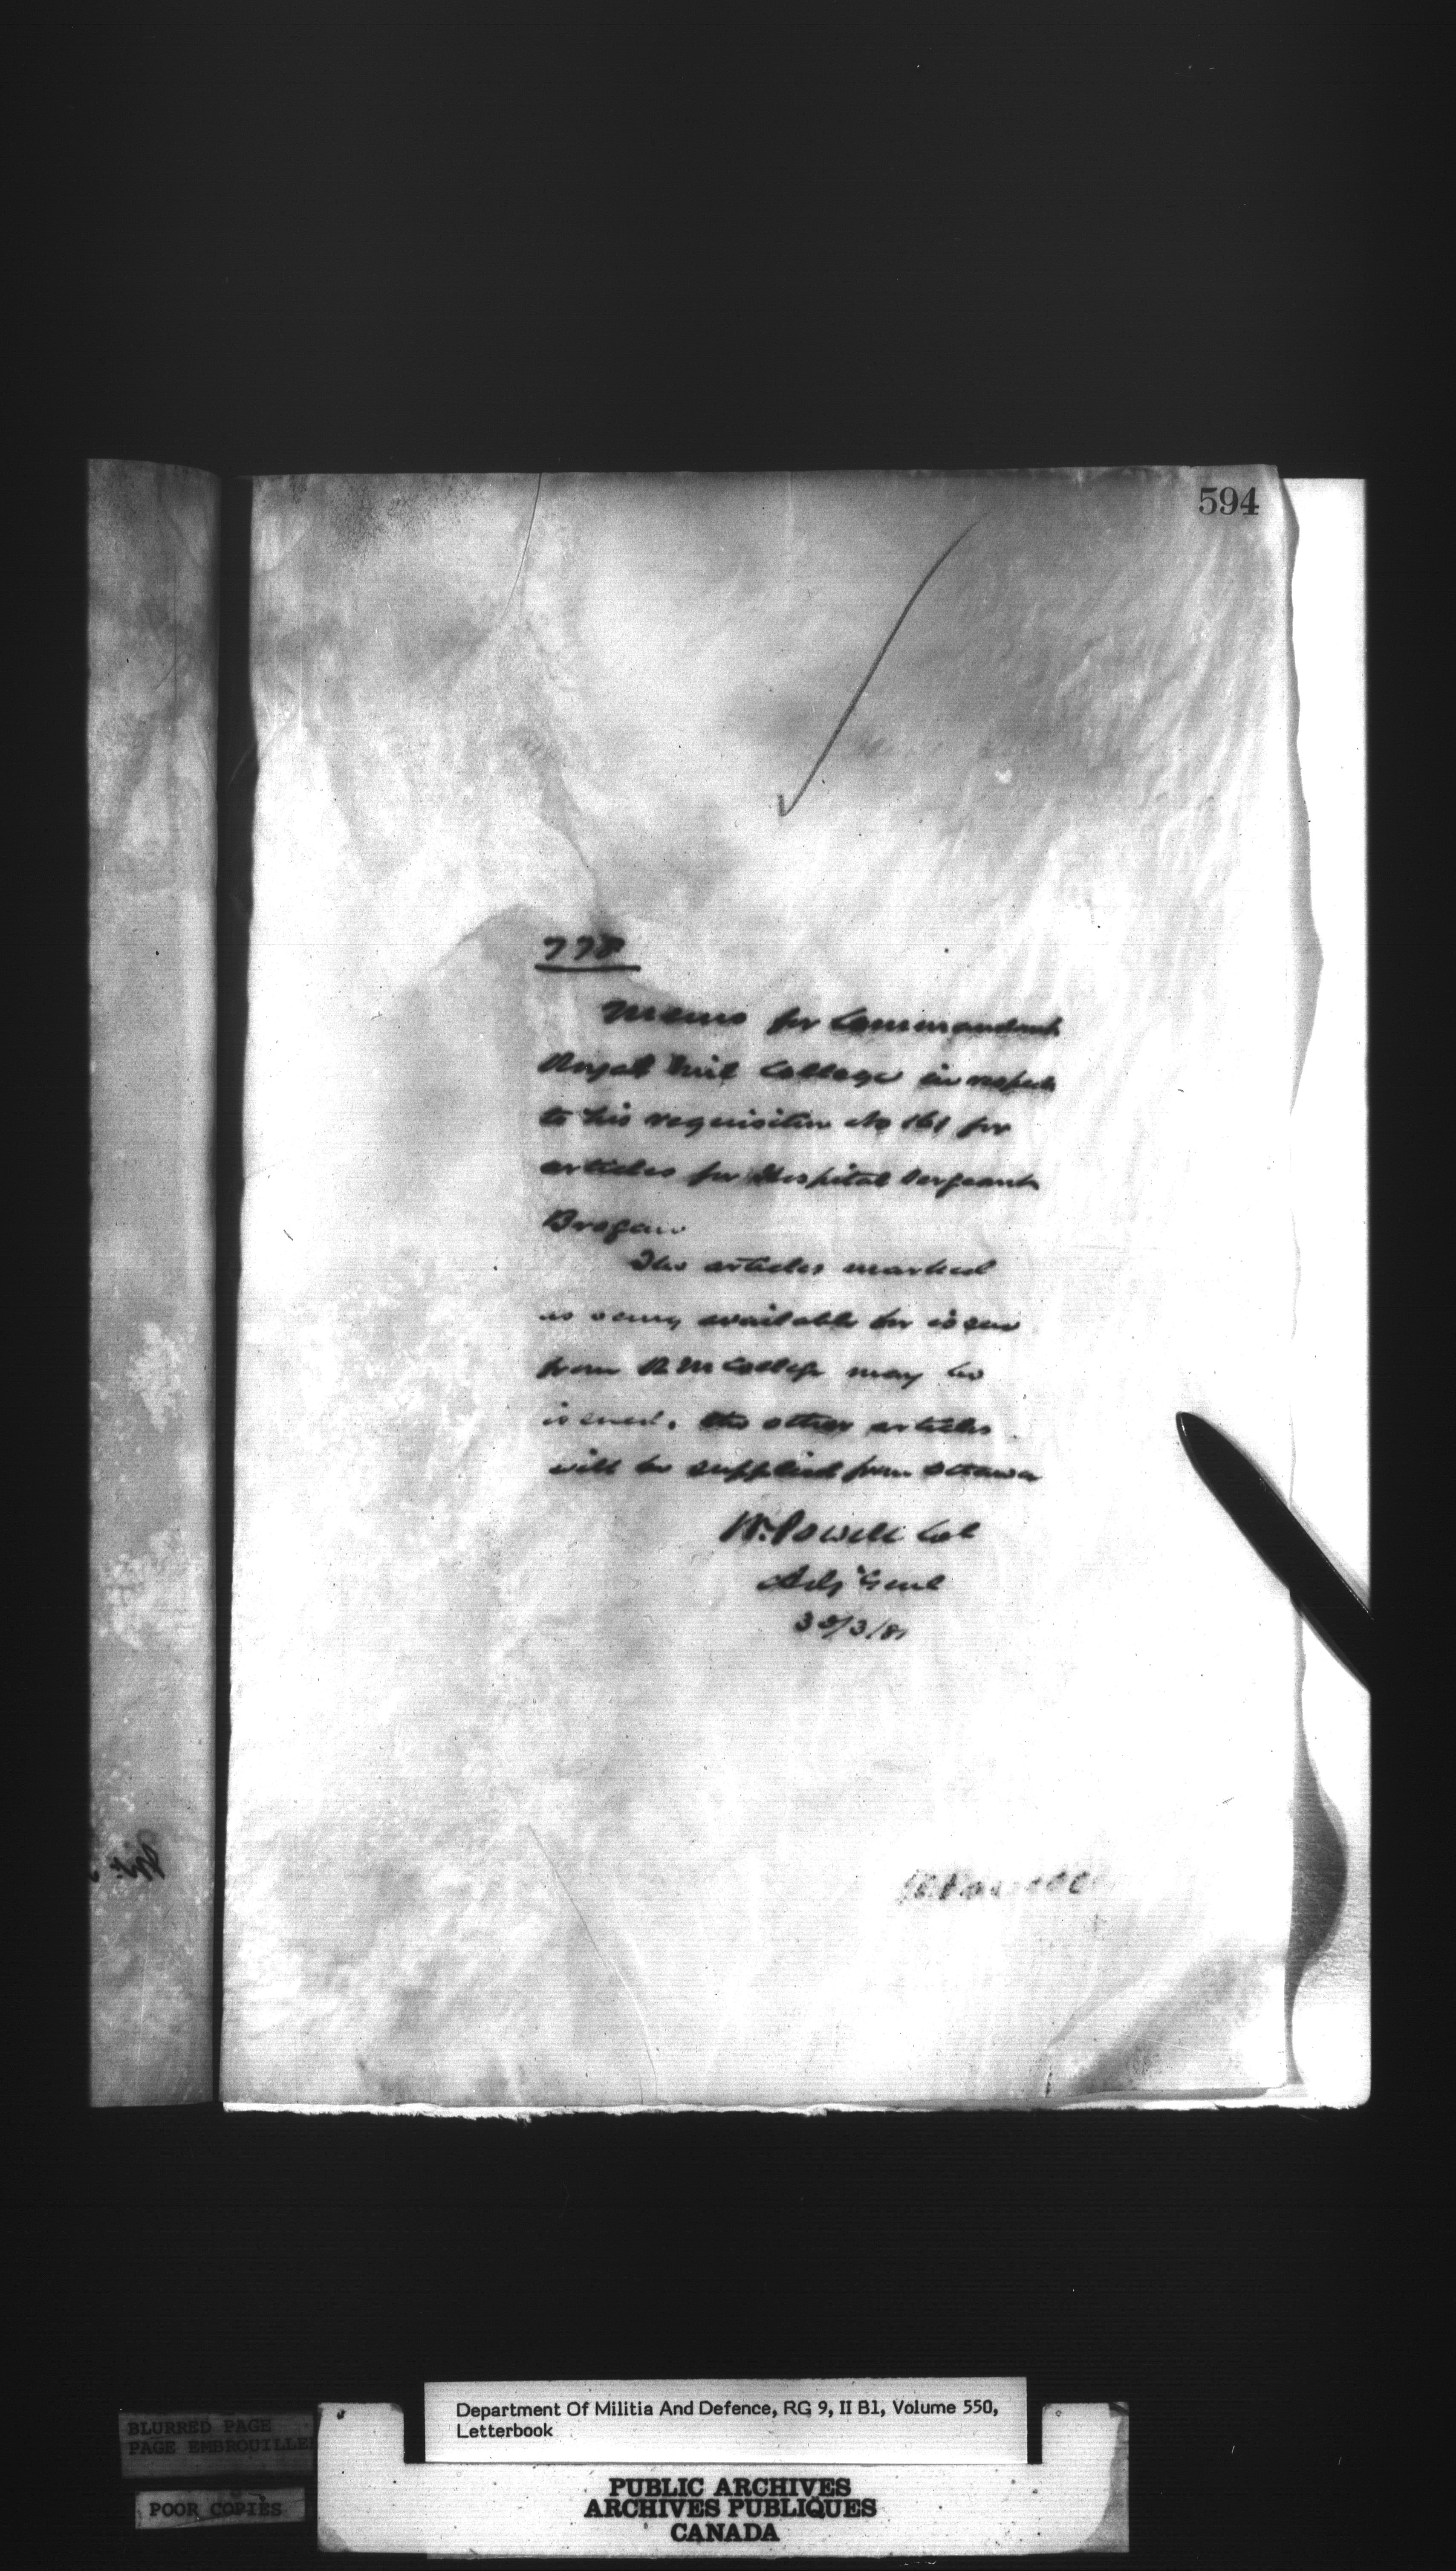 594
778
Memo for Commandant
Royal Mil College in respect
to his requisition No 161 for
articles for Hospital Sergeant
Brogan
The articles marked
as being available for issue
from R M College may be
issued. the other articles
will be supplied from Ottawa
W. Powell Col
Adj Genl
30/3/81
W Powell
Department Of Militia And Defence, RG 9, II B1, Volume 550,
Letterbook
BLURRED PAGE
PAGE EMBROUILLEE
POOR COPIES
PUBLIC ARCHIVES
ARCHIVES PUBLIQUES
CANADA